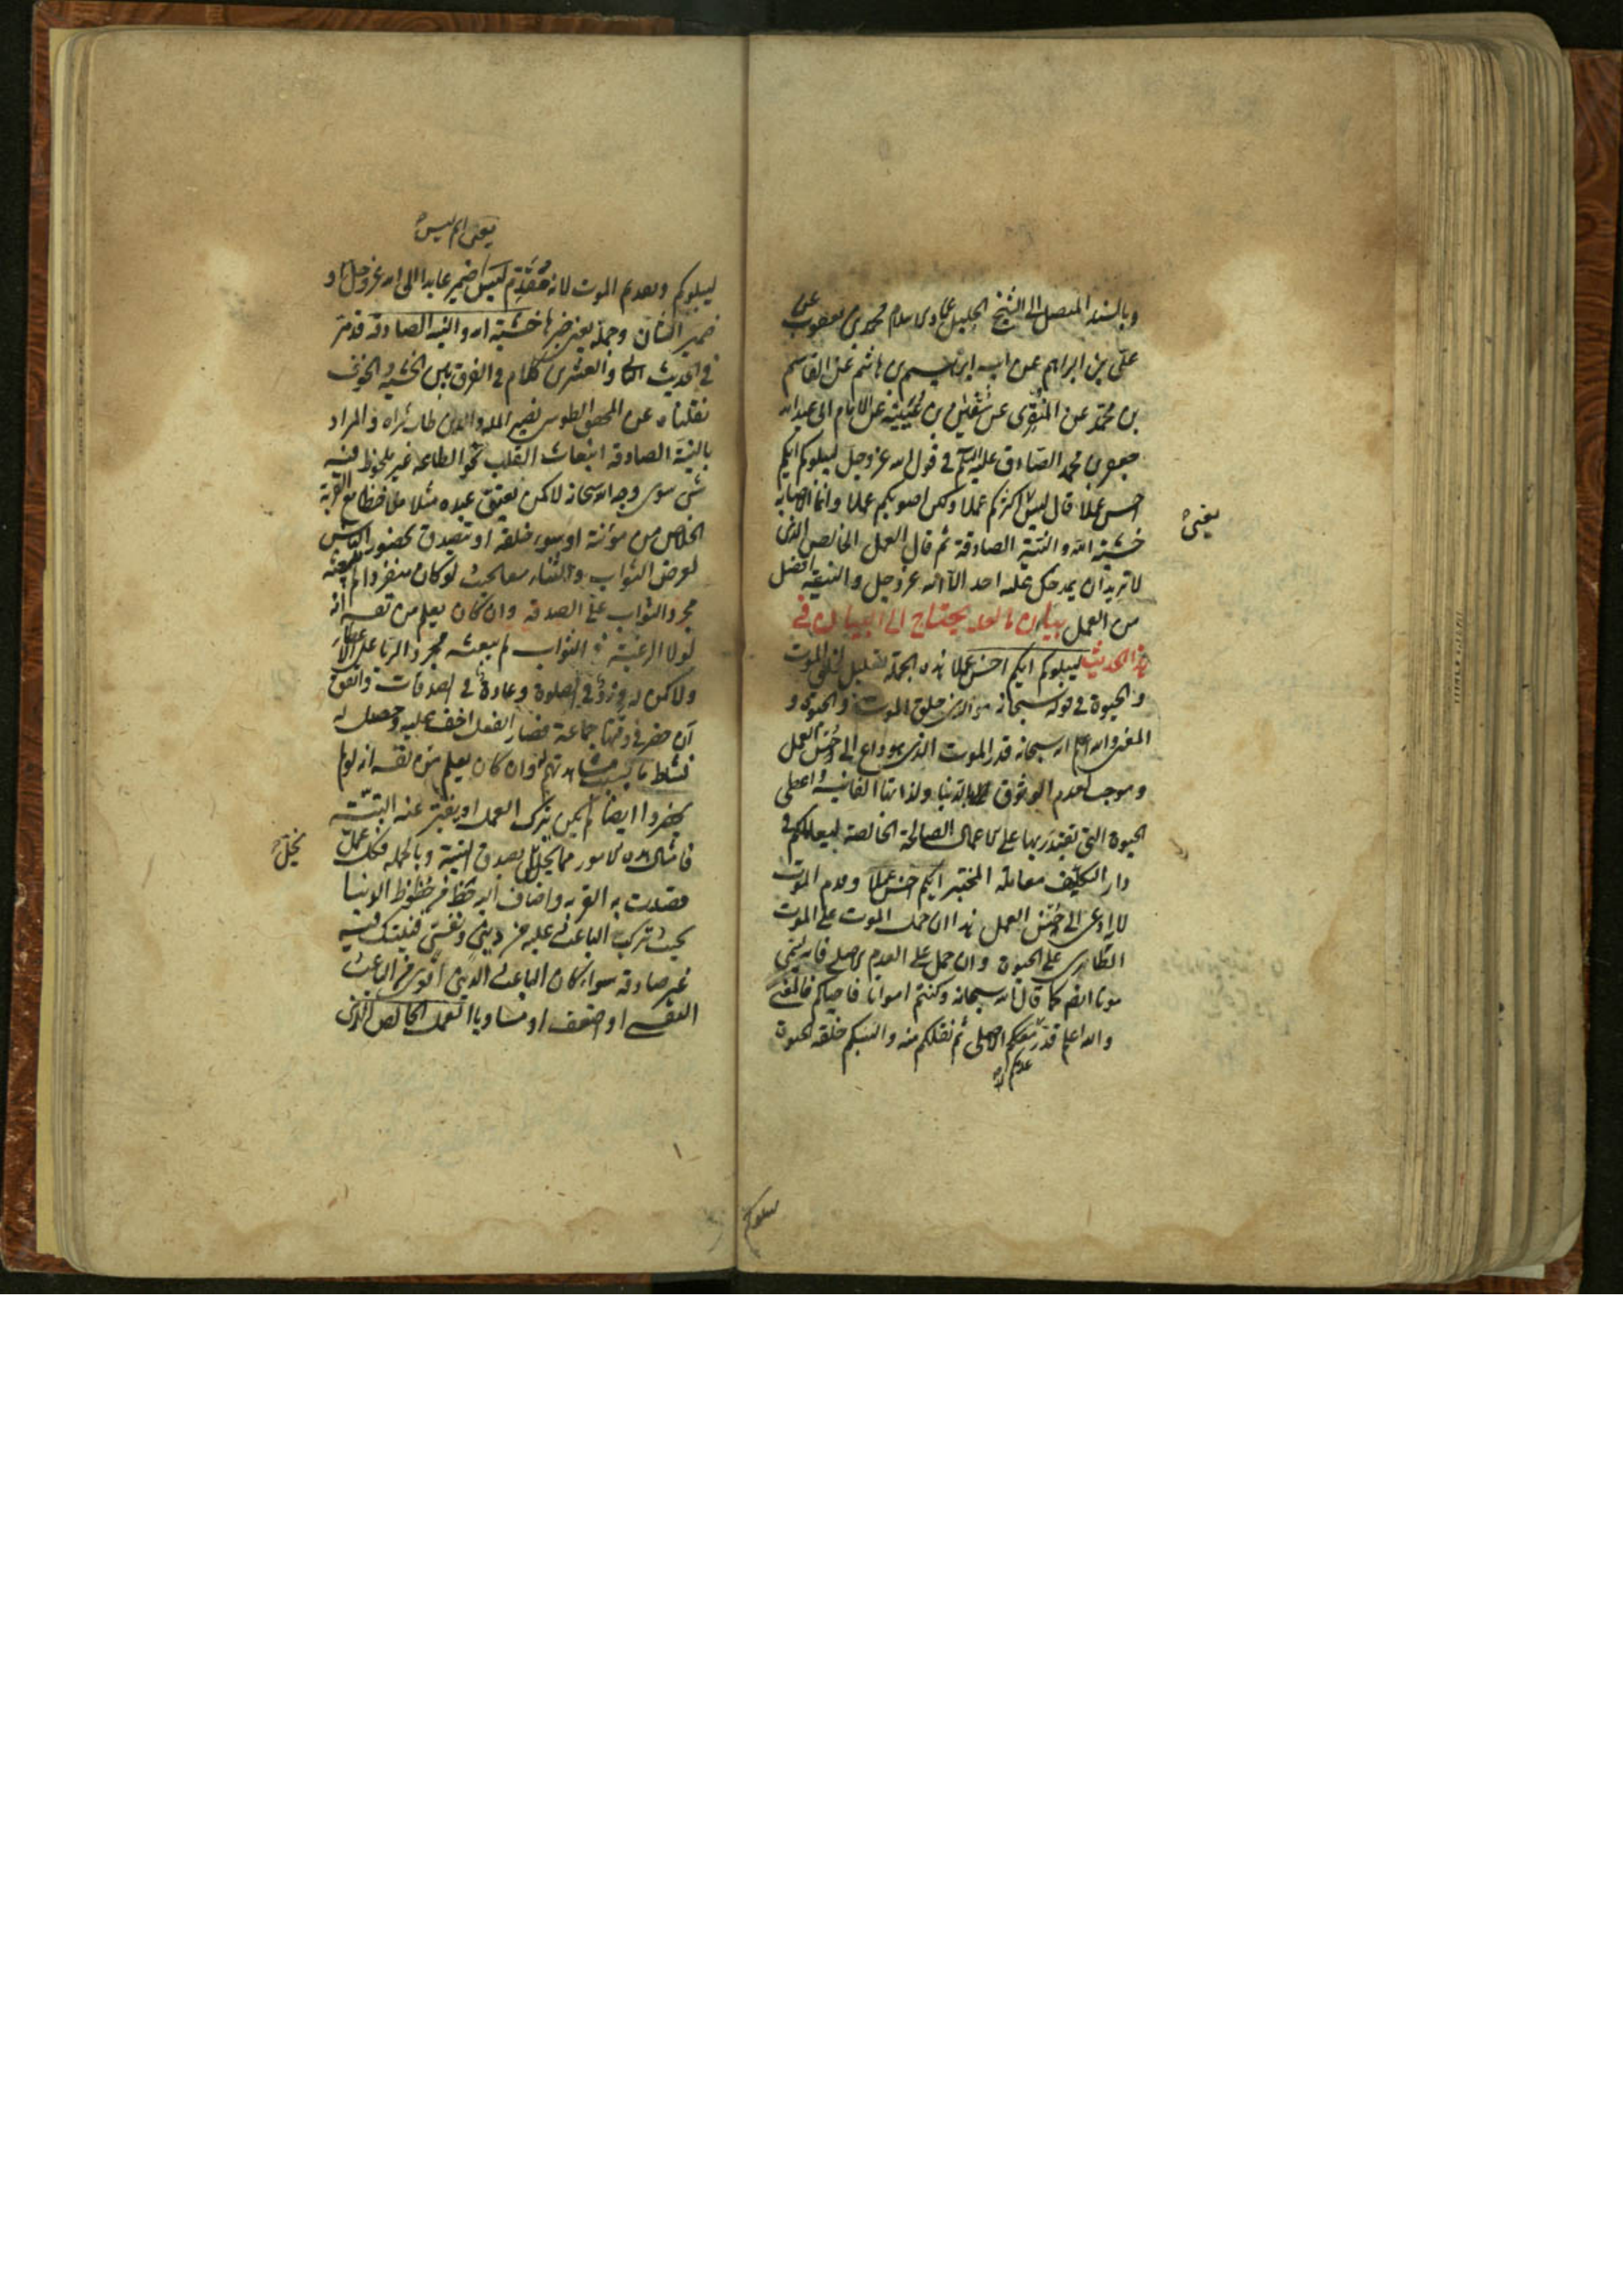 وبالسند المتصل الى الشيخ الجليل عماد الاسلام محمد بن يعقوب عن
على بن ابراهيم عن ابيه ابراهيم بن هاشم عن القاسم
بن محمد عن المنقرى عن سفين بن عيينة عن الامام ابى عبدالله
جعفر بن محمد الصادق عليه السلم فى قول الله عز وجل ليبلوكم ايكم
احسن عملا قال ليس اكثركم عملا ولكن اصوبكم عملا وانما الاصابه
يعنى
خشية الله والنية الصادقة ثم قال العمل الخالص الذى
لا تريد ان يمدحك عليه احد الا الله عز وجل والنية افضل
من العمل بيان ما لعله يحتاج الى البيان فى
هذا الحديث ليبلوكم ايكم احسن عملا هذه الجملة تعليل لخلق الموت
والحيوة فى قوله سبحانه هو الذى خلق الموت والحيوة و
المعنى والله اعلم انه سبحانه قدر الموت الذى هو داع الى حسن العمل
وموجب لعدم الوثوق بالدنيا ولذاتها الفانية واعطى
الحيوة التى تقتدر بها على الاعمال الصالحة الخالصة ليعاملكم فى
دار التكليف معاملة المختبر ايكم احسن عملا وقدم الموت
لانه ادعى الى حسن العمل هذا ان حمل الموت على الموت
الطارى على الحيوة وان حمل على العدم الاصلى فانه يسمى
موتا ايضا كما قال الله سبحانه وكنتم امواتا فاحياكم فالمعنى
والله اعلم قدر عدمكم الاصلى ثم نقلكم منه والبسكم خلقة الحيوة
عدمكم
ليبلوكم
يعنى ايم ليس
ليبلوكم وتقديم الموت لانه مقدم ليس ضمير عايد الى الله عز وجل او
ضمير الشان وجملة يعنى خبرها خشية الله والنية الصادقة قد مر
فى الحديث الثانى والعشرين كلام فى الفرق بين الخشية والخوف
نقلناه عن المحقق الطوسى نصير الملة والدين طاب ثراه والمراد
بالنية الصادقة انبعاث القلب نحو الطاعة غير ملحوظ فيه
شى سوى وجه الله سبحانه لا كمن يعتق عبده مثلا ملاحظا مع القربة
الخلاص من مؤنته او سوء خلقه او تيصدق بحضور الناس
لغرض الثواب والثناء معا بحيث لو كان منفردا لم يبعثه
مجرد الثواب على الصدقة وان كان يعلم من نفسه انه
لولا الرغبة فى الثواب لم يبعثه مجرد الريا على الاعطاء
ولا كمن له ورد فى الصلوة وعادة فى الصدقات واتفق
ان حضر فى وقتها جماعة فصار الفعل اخف عليه وحصل له
نشاط ما بسبب مشاهدتهم له وان كان يعلم من نفسه انه لو لم
يحضروا ايضا لم يكن يترك العمل او يفتر عنه البتة
فامثال هذه الامور مما يخل بصدق النية وبالجملة فكل عمل
يخل
قصدت به القربة واضاف اليه حظ من حظوظ الدنيا
بحيث تركب الباعث عليه من دينى ونفسى فنيتك فيه
غير صادقة سواء كان الباعث الدينى اقوى من الباعث
النفسى او اضعف او مساويا العمل الخالص الذى